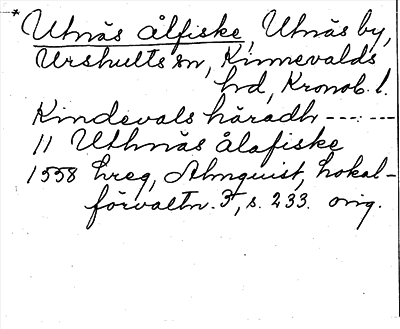 * Utnäs ålfiske, Utnäs by,
Urshults sn, Kinnevalds
hd, Kronob. l.
Kindevals häradh --- ---
11 Uthnäs ålafiske
1558 Ereg, Almquist, Lokal-
förvaltn. 3, s. 233. orig.